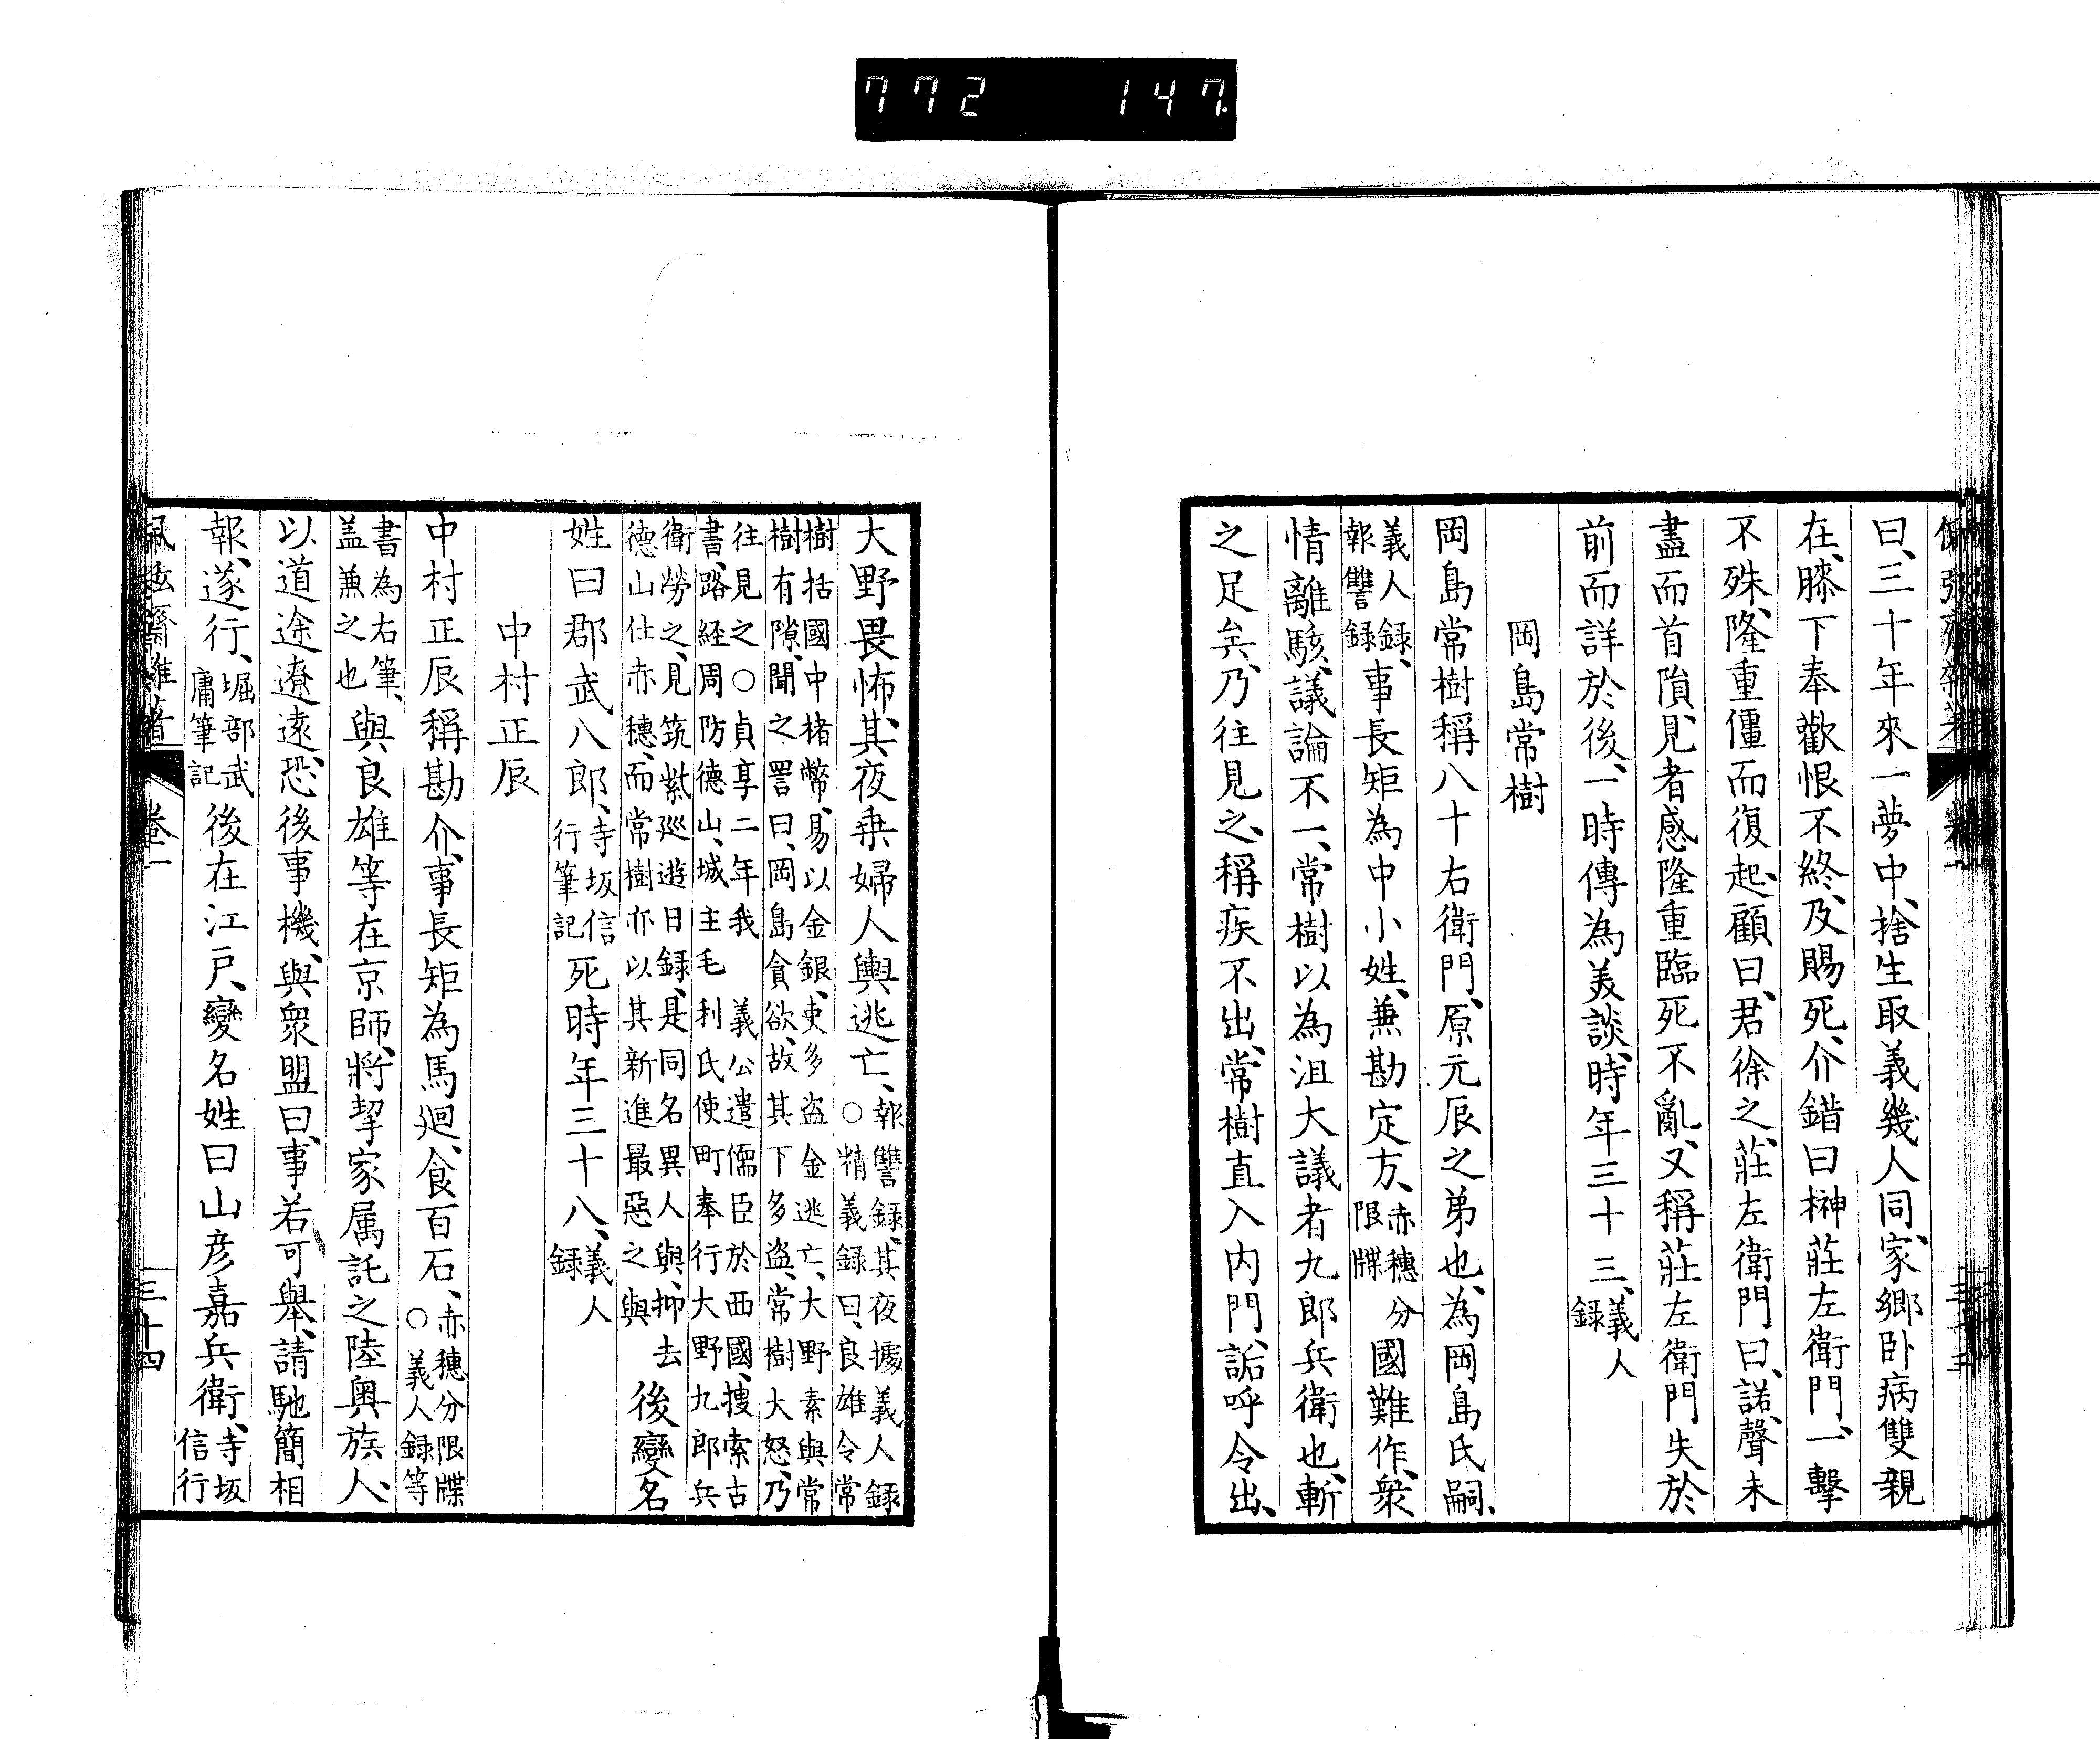 772 147.
曰、三十年來一夢中、捨生取義幾人同、家郷卧病雙親
在、膝下奉歡恨不終、及賜死、介錯曰榊莊左衛門、一擊
不殊、隆重僵而復起、顧曰、君徐之、莊左衛門曰、諾、聲未
盡而首隕、見者感隆重臨死不亂、又稱莊左衛門失於
前而詳於後、一時傳為美談、時年三十三、義人
録
岡島常樹
岡島常樹稱八十右衛門、原元辰之弟也、為岡島氏嗣、
義人録、
報讐録
事長矩為中小姓、兼勘定方、
赤穗分
限牒
國難作、衆
情離駭、議論不一、常樹以為沮大議者九郎兵衛也、斬
之足矣、乃往見之、稱疾不出、常樹直入内門、詬呼令出、
大野畏怖、其夜乗婦人輿逃亡、
報讐録、其夜據義人録
○精義録曰、良雄令常
樹括國中楮幣、易以金銀、吏多盗金逃亡、大野素與常
樹有隙、聞之詈曰、岡島貪欲、故其下多盗、常樹大怒、乃
往見之○貞享二年我 義公遣儒臣於西國、捜索古
書、路経周防德山、城主毛利氏使町奉行大野九郎兵
衛勞之、見筑紫巡遊日録、是同名異人與、抑去
德山仕赤穗、而常樹亦以其新進最惡之與
後變名
姓曰郡武八郎、
寺坂信
行筆記
死時年三十八、
義人
録
中村正辰
中村正辰稱勘介、事長矩為馬廻、食百石、
赤穗分限牒
○義人録等
書為右筆、
盖兼之也
與良雄等在京師、將挈家属託之陸奥族人、
以道途遼遠、恐後事機、與衆盟曰、事若可舉、請馳簡相
報、遂行、
堀部武
庸筆記
後在江戸、變名姓曰山彦嘉兵衛、
寺坂
信行
佩弦齋雜著 卷一 三十四